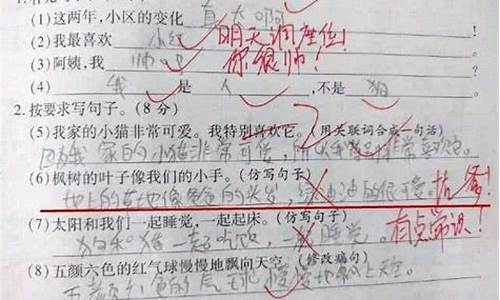 (1)这两年,小区的变化真大啊
(2)我最喜欢小红 明天调座位!
(3)阿姨,我帅吧 你很帅!
(4)我是人,不是狗
2.按要求写句子。(8 分)
(5)我家的小猫非常可爱。我特别喜欢它。(用关联词合成一句话)
因为我家的小猫非常可爱,所以我特别非常喜欢它。
(6)枫树的叶子像我们的小手。(仿写句子)
地上的草地像爸爸的头发,绿油油的很可爱。
(7)太阳和我们一起睡觉,一起起床。(仿写句子)
狗和猪一起吃饭,一起睡觉。 有点常识!
(8)五颜六色的红气球慢慢地飘向天空。(修改病句)
五颜六色的气球慢慢地飘上天空。